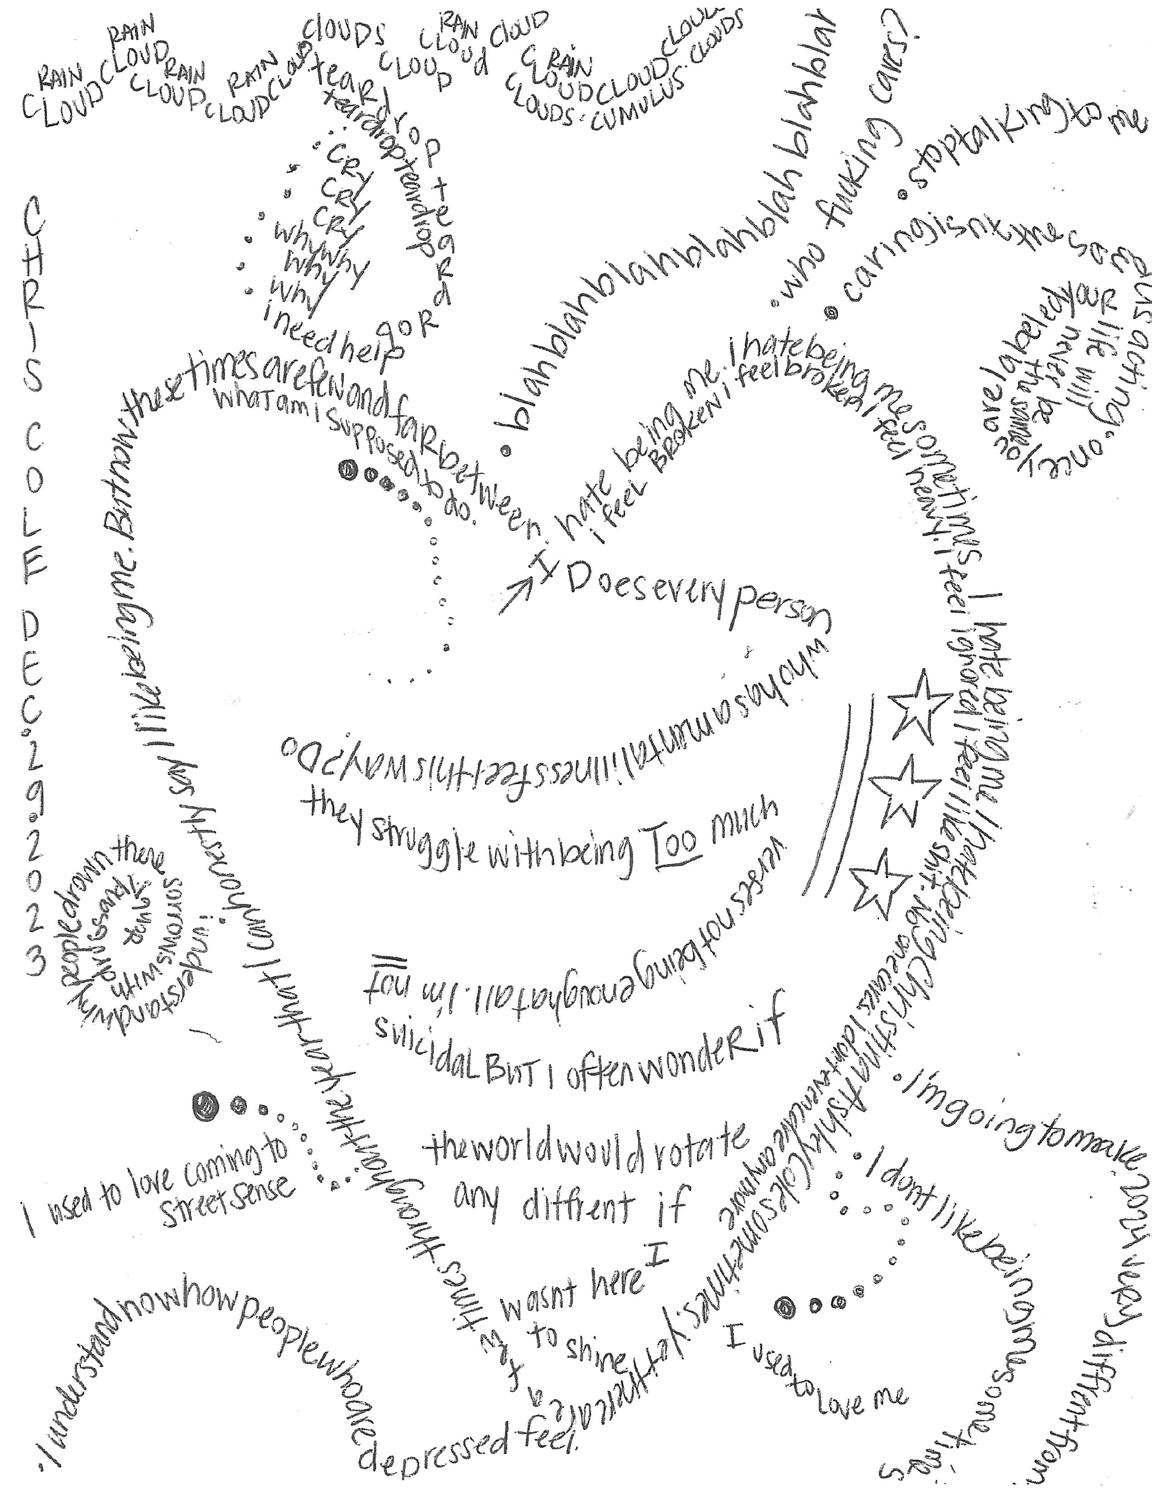 RAIN CLOUD
RAIN CLOUD
RAIN CLOUD
RAIN CLOUD
CLOUD
CLOUDS
CLOUD
RAIN CLOUD
CLOUD
CLOUD
RAIN CLOUD
CLOUDS.
CLOUD
CUMULUS.
CLOUD
CLOUDS
teardropteardrop
teardropteardrop
CRY
CRY
CRY
whywhy
why
why
i need help
CHRIS COLE DEC. 29. 2023
• blahblahblahblahblahblahblahblah
• who fucking cares?
• stoptalking to me
• caring isnt the same as acting. once you are labeled your life will never be the same
I hate being me. I hate being me sometimes I hate being me. I hate being Christina Ashley Cole sometimes, yet there are a few times throughout the year that I can honestly say I like being me. But now these times are few and far between.
i feel BROKEN i feel broken I feel heavy. I feel ignored I feel like shit. No one cares I dont even care anymore
what am I supposed to do.
Does every person
who has a mental illness feel this way? Do
they struggle with being Too much
verses not being enough at all. I'm not
suicidal But I often wonder if
the world would rotate
any diffrent if
I
wasnt here
to shine
i understand why people drown there sorrows with drugs and liquor
I used to love coming to
StreetSense
• I understand now how people who are depressed feel.
• I'm going to make
• I dont like being a mess sometimes
I used to love me